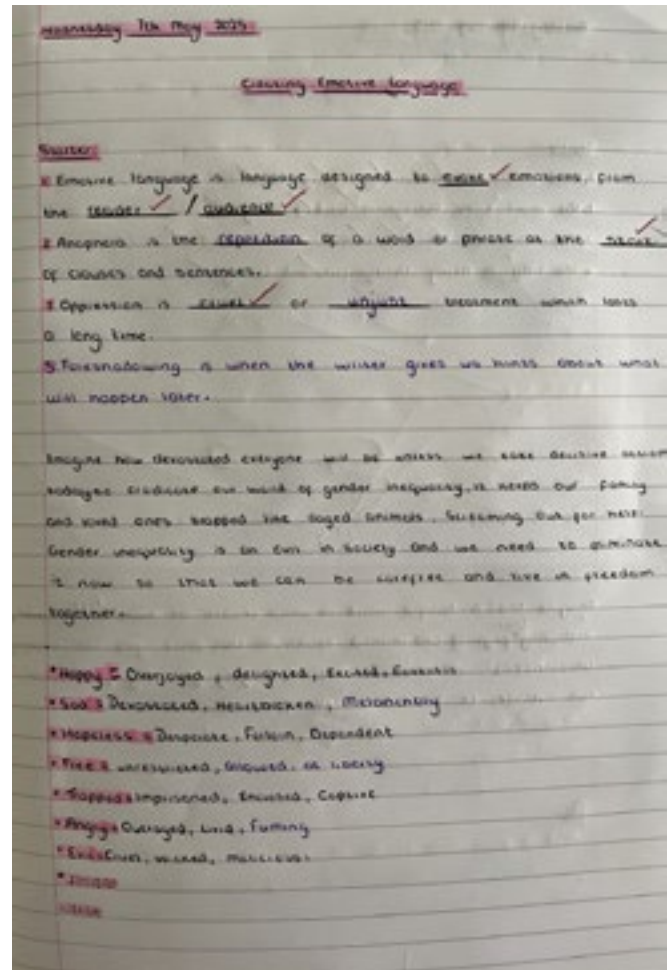 Wednesday 7th May 2025
Emotive Language
Starter:
1 Emotive language is language designed to evoke emotions from
the reader / audience.
2 Anaphora is the repetition of a word or phrase at the start
of clauses and sentences.
3 Oppression is cruel or unjust treatment which lasts
a long time.
5 Foreshadowing is when the writer gives us hints about what
will happen later.
Imagine how devastated everyone will be unless we take decisive action
eradicate our world of gender inequality, it keeps our family
and loved ones trapped like caged animals, screaming out for help.
Gender inequality is an evil in society and we need to eliminate
it now so that we can be carefree and live in freedom
together.
• Happy = Overjoyed, delighted, Excited, Ecstatic
• Sad = Devastated, Heartbroken, Melancholy
• Hopeless = Desperate, Dependent
• Free = unrestricted, allowed, at liberty
• Trapped = Imprisoned, Enclosed, Captive
• Angry = Outraged, Livid, Fuming
• Evil = Cruel, wicked, malicious